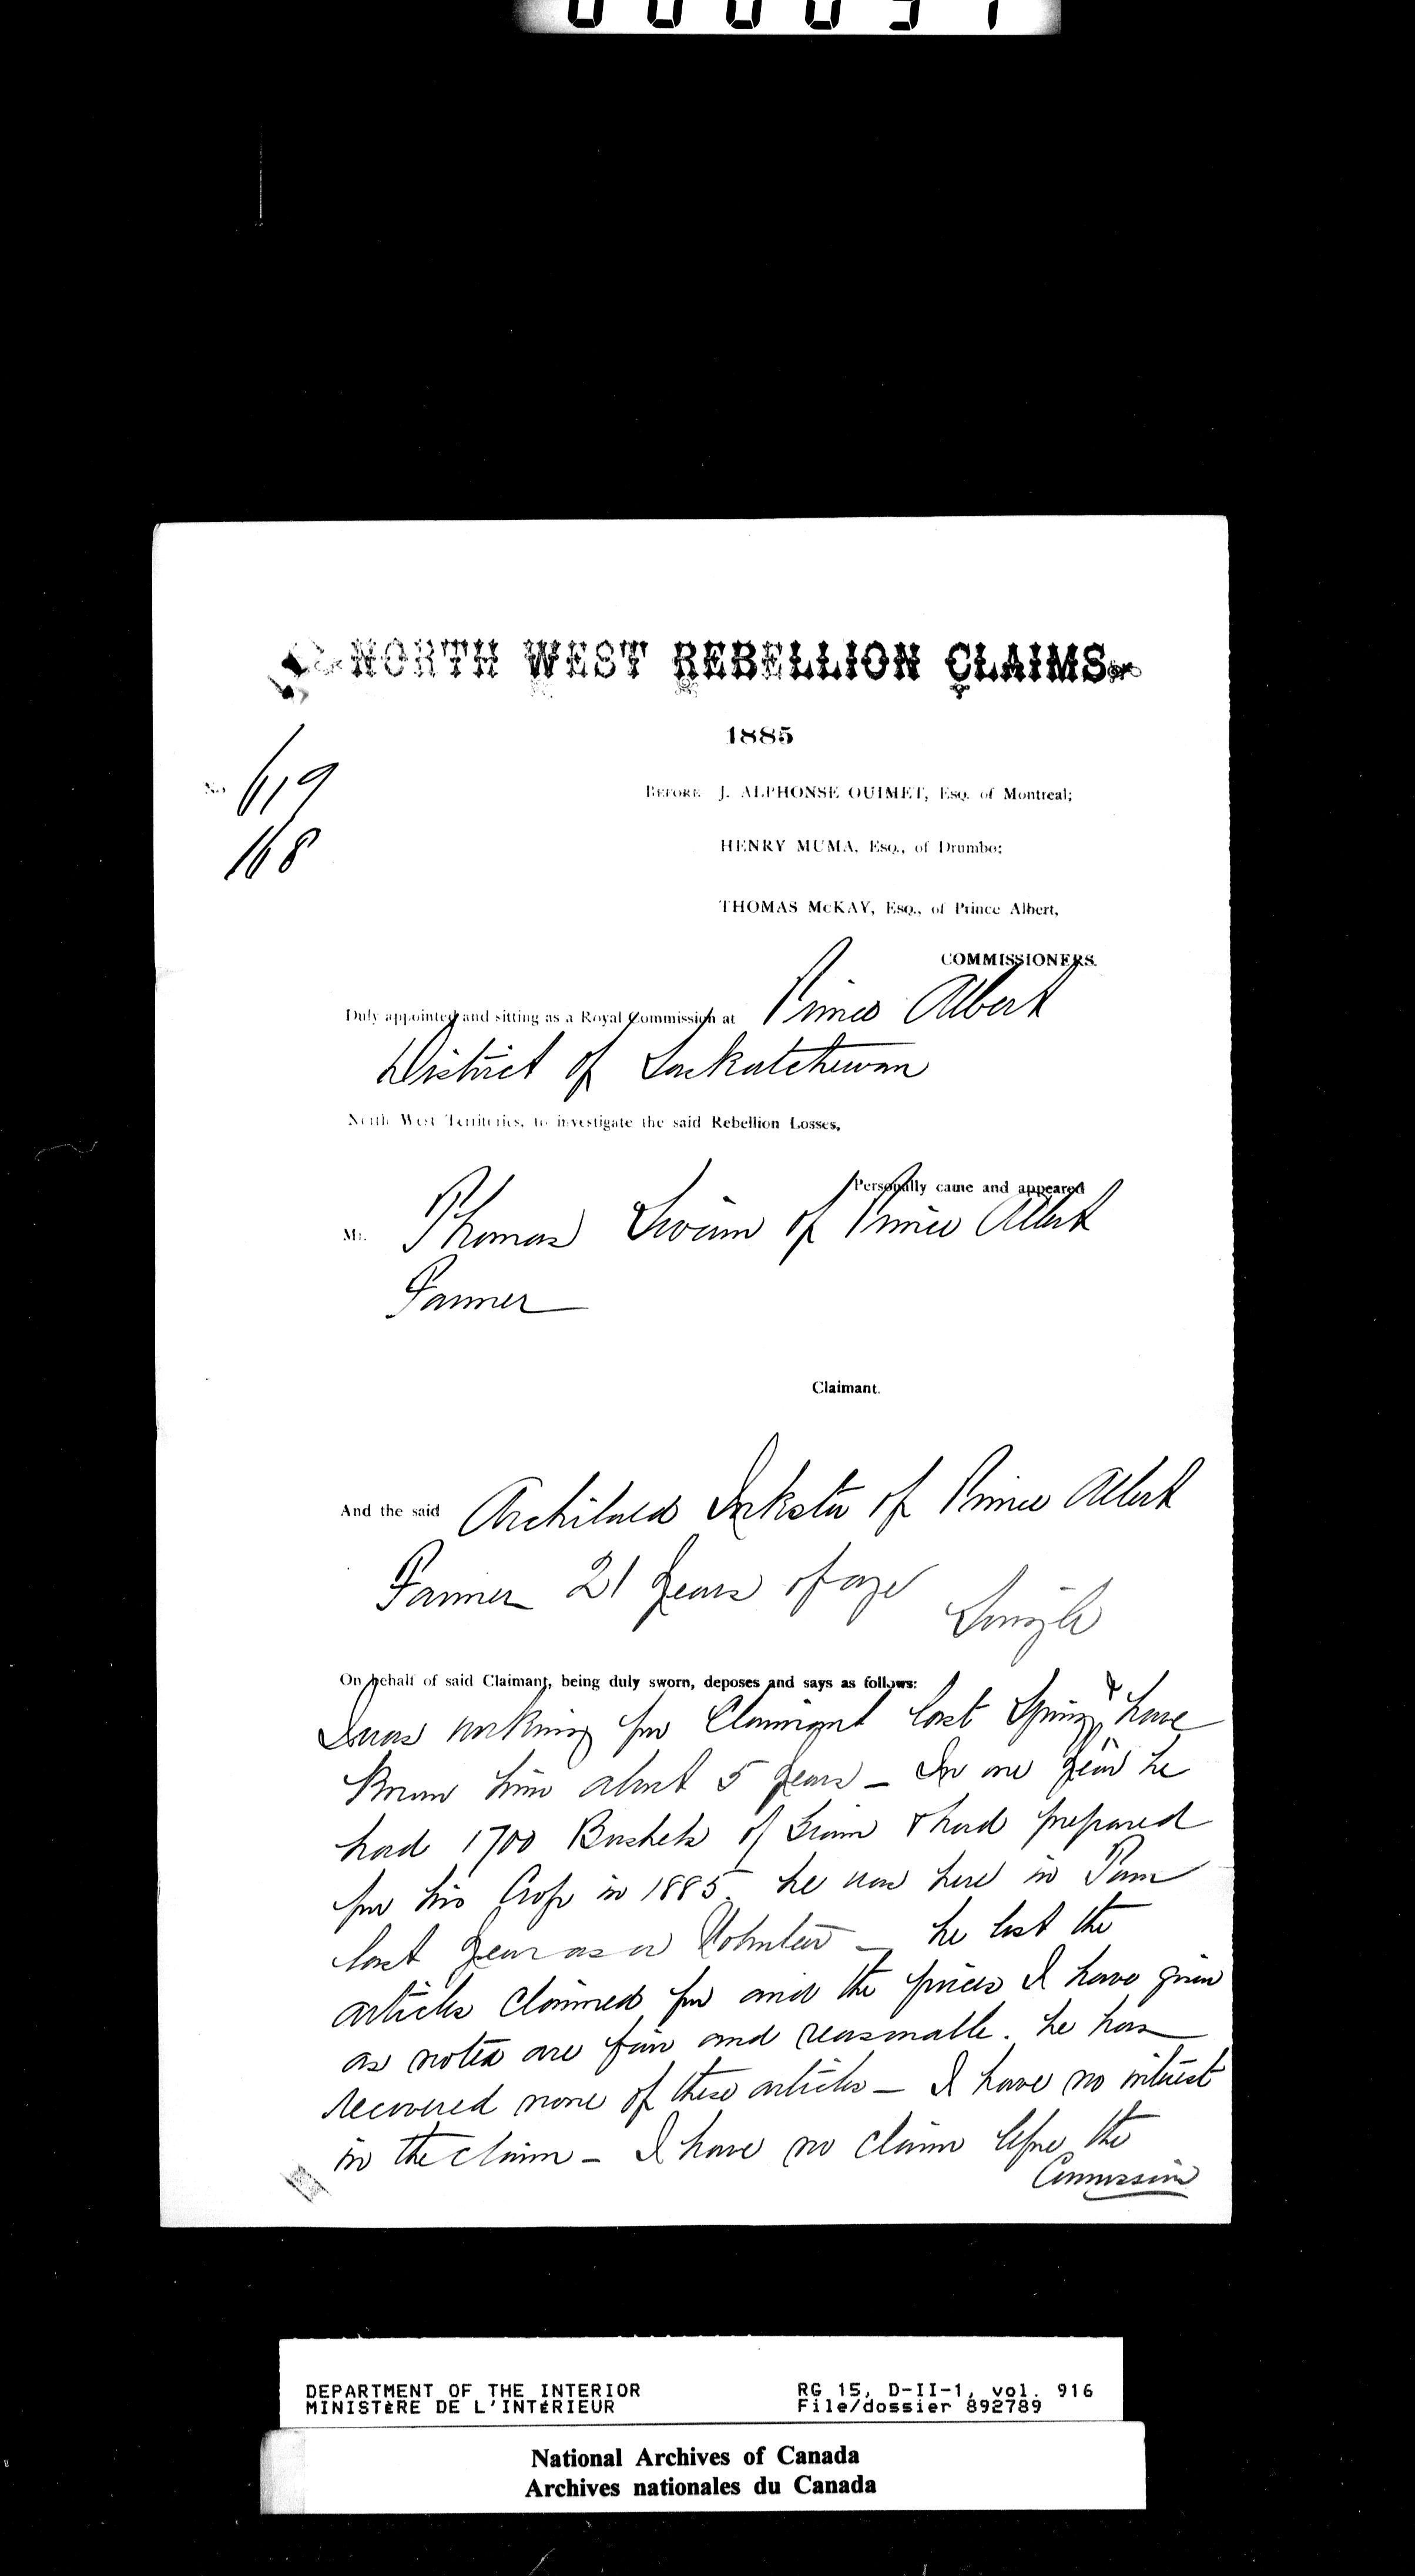 NORTH WEST REBELLION CLAIMS.
1885
No 619
168
BEFORE J. ALPHONSE OUIMET, ESQ. of Montreal;
HENRY MUMA, ESQ., of Drumbo;
THOMAS McKAY, ESQ., of Prince Albert,
COMMISSIONERS.
Duly appointed and sitting as a Royal Commission at Prince Albert
District of Saskatchewan
North West Territories, to investigate the said Rebellion Losses,
Personally came and appeared
Mr. Thomas Swain of Prince Albert
Farmer
Claimant.
And the said Archibald Inkster of Prince Albert
Farmer 21 years of age Single
On behalf of said Claimant, being duly sworn, deposes and says as follows:
I was working for Claimant last Spring & have
known him about 5 years – In one year he
had 1700 Bushels of Grain & had prepared
for his Crop in 1885. he was here in Town
last year as a Volunteer – he lost the
articles claimed for and the prices I have given
as noted are fair and reasonable. he has
recovered none of these articles – I have no interest
in the claim – I have no claim before the
Commission
DEPARTMENT OF THE INTERIOR
MINISTÈRE DE L'INTÉRIEUR
RG 15, D-II-1, vol. 916
File/dossier 892789
National Archives of Canada
Archives nationales du Canada